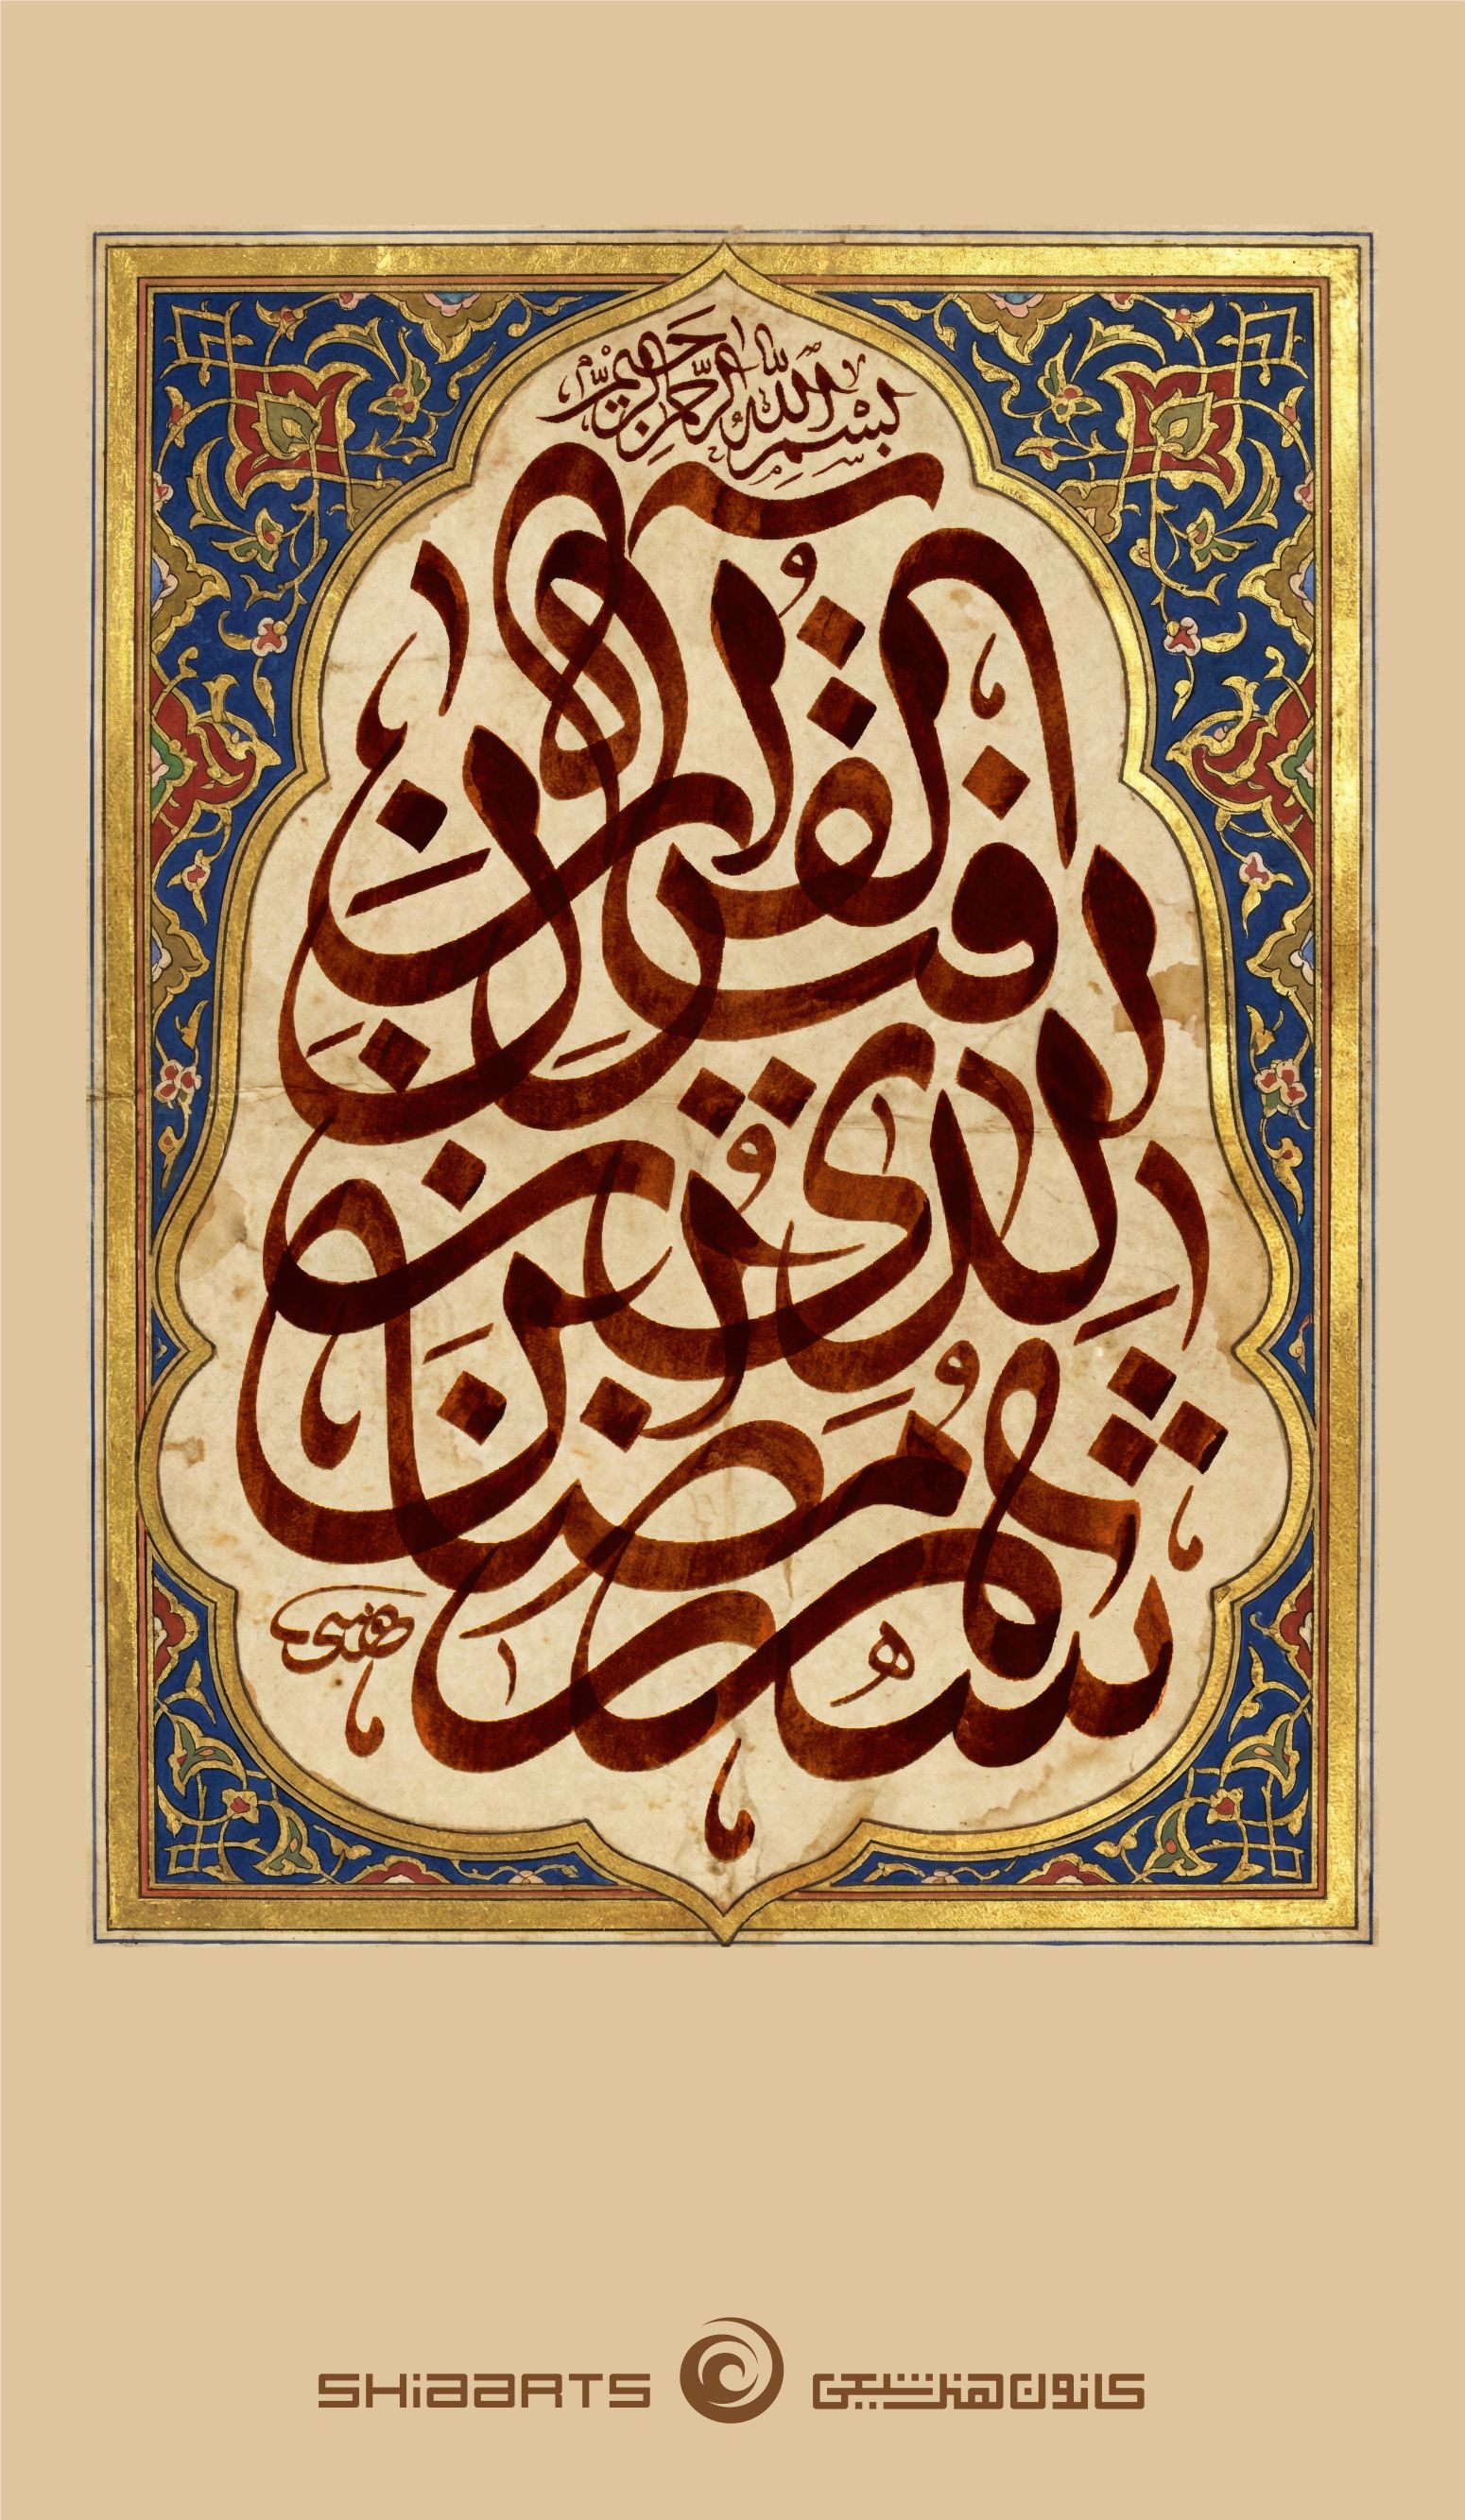 بِسْمِ اللّٰهِ الرَّحْمٰنِ الرَّحِیْمِ
شَهْرُ رَمَضَانَ الَّذِی أُنْزِلَ فِیهِ الْقُرْآنُ
SHIAARTS
کانون هنر شیعی